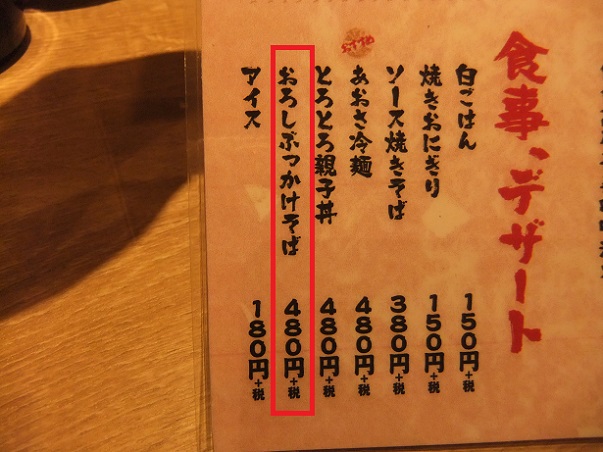 食事、デザート
白ごはん 150円+税
焼きおにぎり 150円+税
ソース焼きそば 380円+税
あおさ冷麺 480円+税
とろとろ親子丼 480円+税
おろしぶっかけそば 480円+税
アイス 180円+税